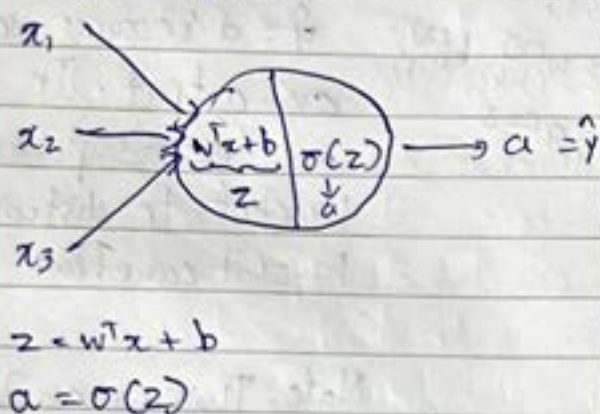 x₁
x₂
x₃
wᵀx+b
z
σ(z)
↓
a
→ a = ŷ
z = wᵀx + b
a = σ(z)